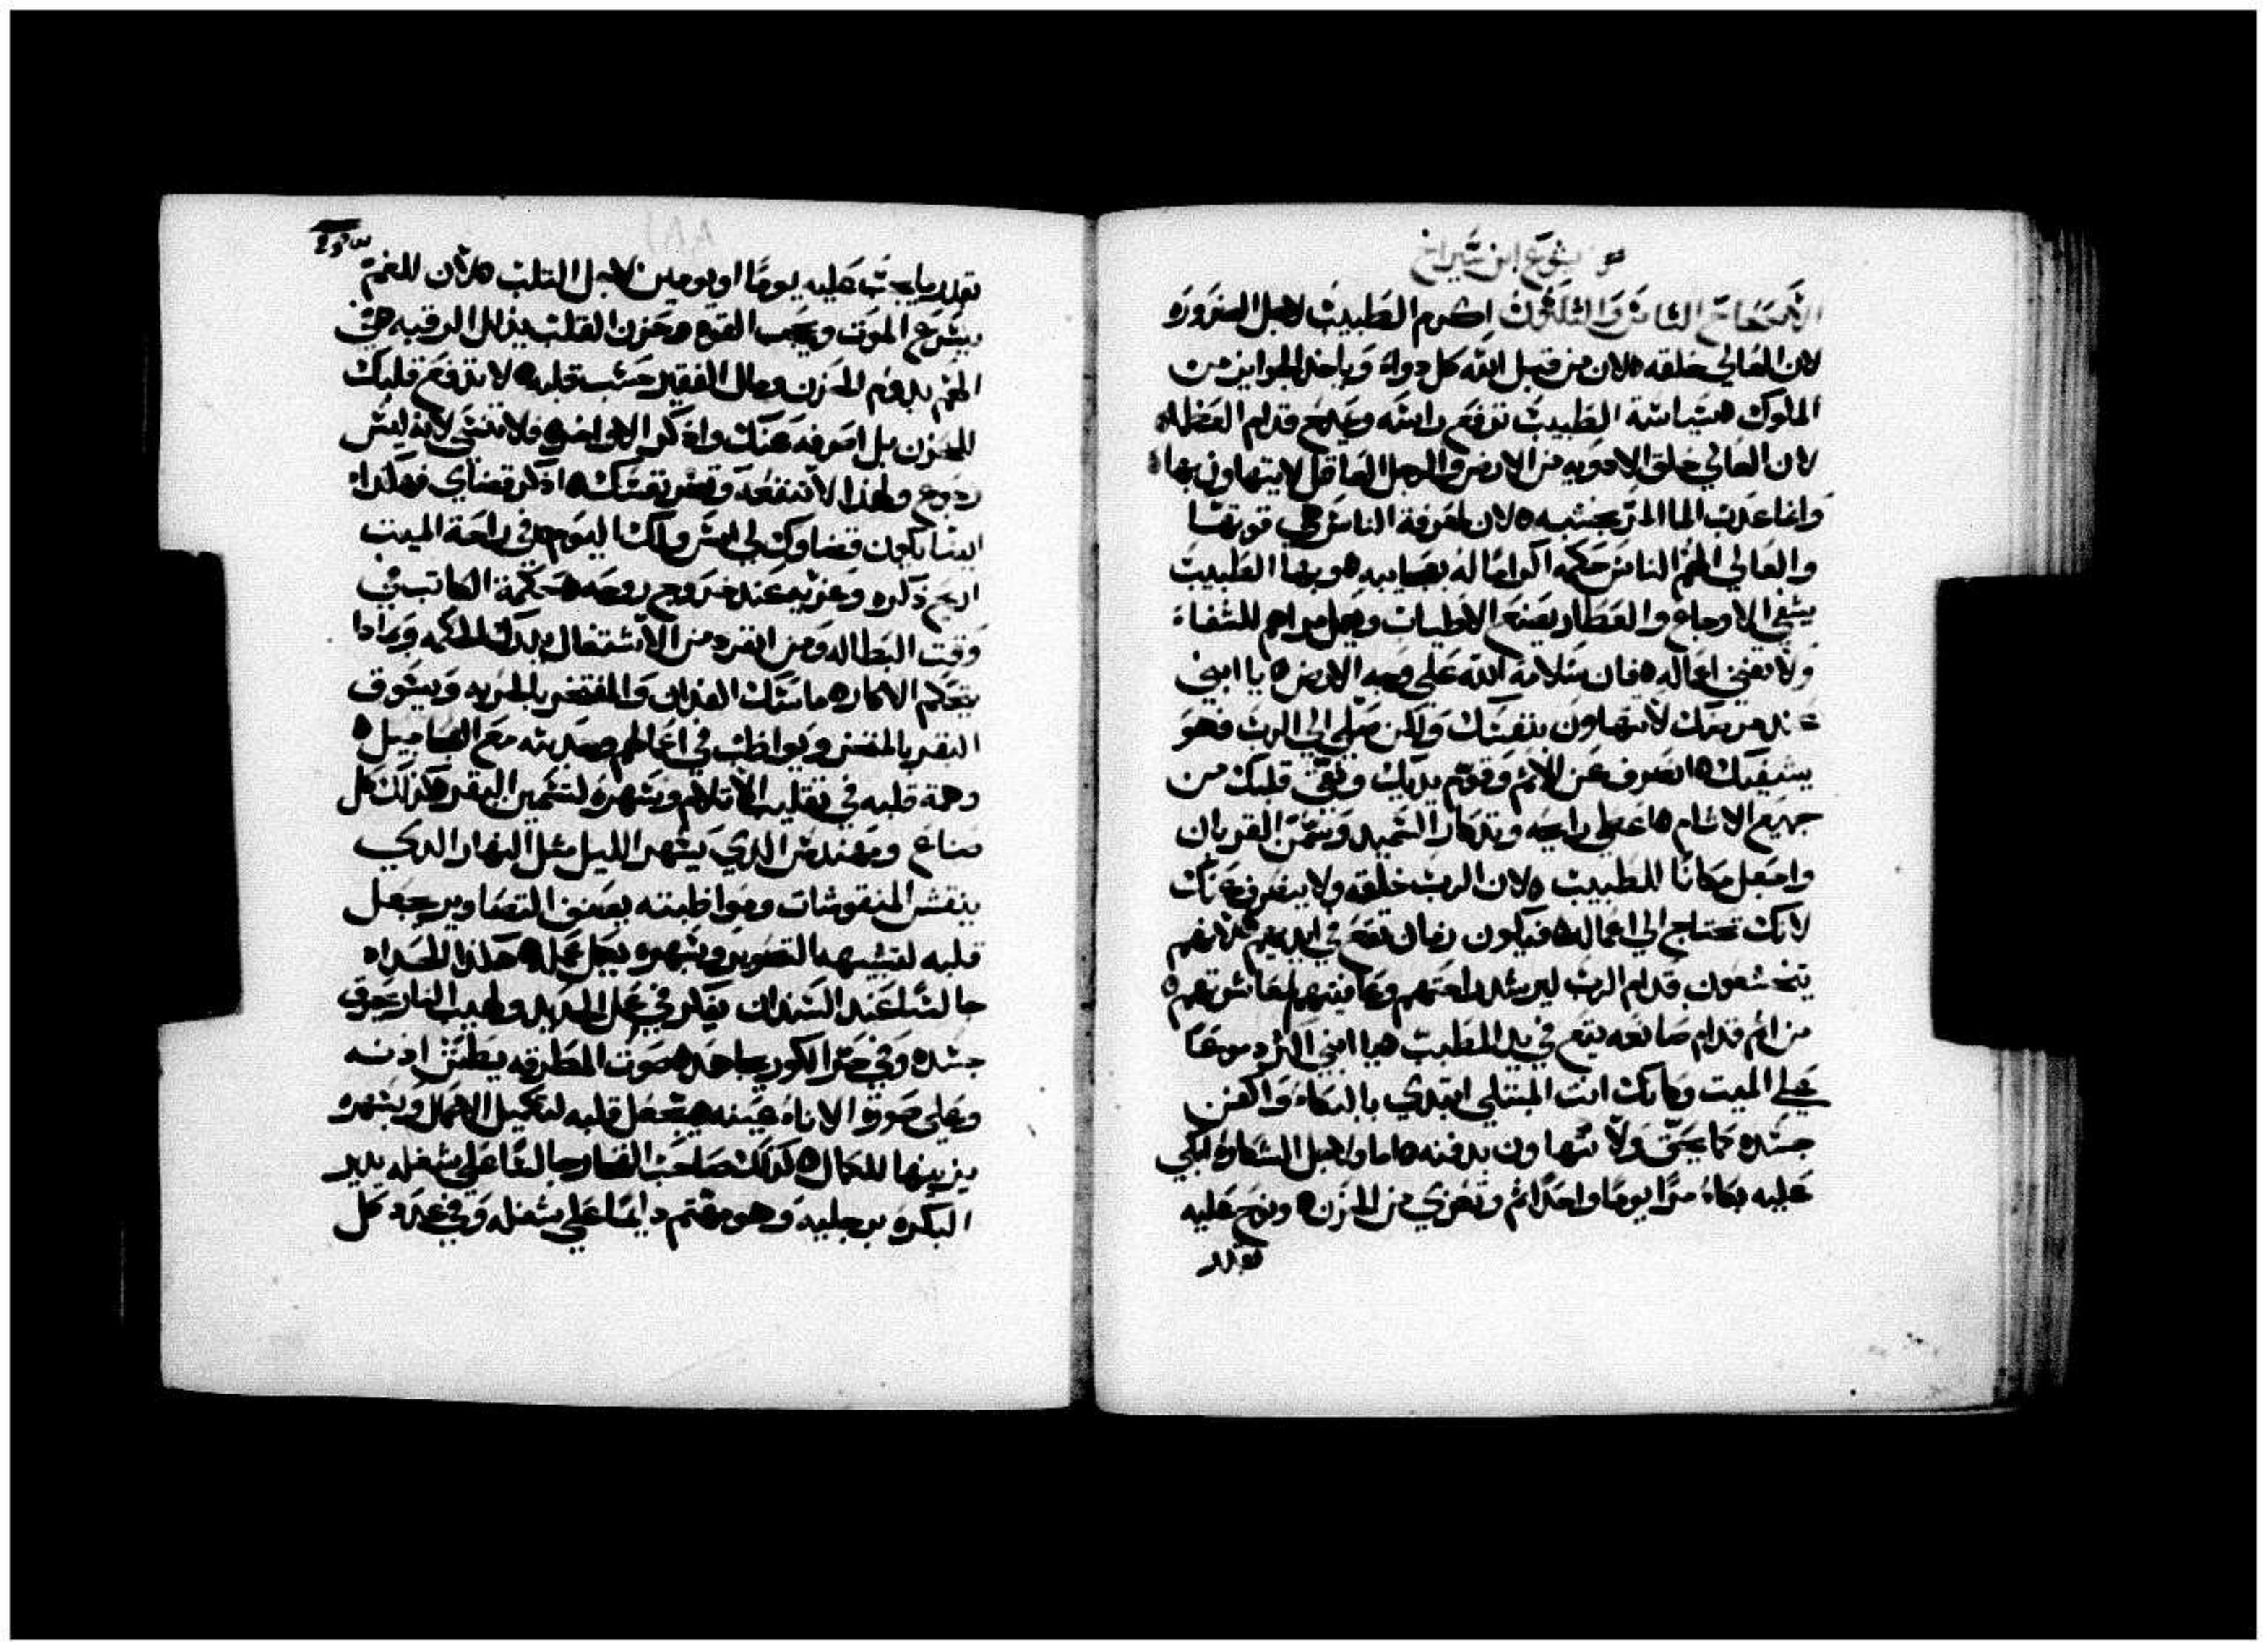 يشوع ابن شيراخ
الاصحاح الثامن والثلثون اكرم الطبيب لاجل الضروره
لان العالي خلقه ه لان من قبل الله كل دواء وياخد الجوايز من
الملوك ه سياسة الطبيب ترفع راسه ويمدح قدام العظماء
لان العالي خلق الادويه من الارض والرجل العاقل لا يتهاون بها ه
وانما عدب الما المر بخشبه ه لان لمعرفة الناس هي قوتها
والعالي الهم الناس حكمه اكراما له بعجايبه ه وبهذا الطبيب
يشفي الاوجاع والعطار يصنع الاطياب ويعمل مراهم للشفاء
ولا تفني اعماله ه فان سلامة الله علي وجه الارض ه يا ابني
عند مرضك لا تتهاون بنفسك ولكن صلي الي الرب فهو
يشفيك ه انصرف عن الاثم وقوم يديك ونقي قلبك من
جميع الاثام ه اعطي رايحه وتدكار السميد وسمن القربان
واجعل مكانا للطبيب ه لان الرب خلقه ولا ينصرف عنك
لانك تحتاج الي اعماله ه فيكون زمان تقع في ايديهم ه لانهم
يتخشعون قدام الرب ليرشد راحتهم وعافيتهم لمعاشرتهم ه
من اثم قدام صانعه يقع في يد الطبيب ه يا ابني اكثر دموعا
علي الميت وكانك انت المبتلي ابتدي بالبكاء واكفن
جسده كما يحق ولا تتهاون بدفنه ه اما ولاجل الشكاوه ابكي
عليه بكاء مرا يوما واحدا ثم وتعزي من الحزن ه ونوح عليه
بقدر
بقدر ما يجب عليه يوما او يومين لاجل التلب ه لان للغم
يسرع الموت ويحجب القوه وحزن القلب يذلل الرقبه ه في
الغم يدوم الحزن ومال الفقير حسب قلبه ه لا تدفع قلبك
للحزن بل اصرفه عنك وادكر الاواخر ه ولا تنسي لانه ليس
رجوع ولهذا لا تنفعه وتضر نفسك ه ادكر قضاي فهكذا
ايضا يكون قضاوك لي امس ولك اليوم ه في راحة الميت
ارح ذكره وعزيه عند خروج روحه ه حكمة الكاتب في
وقت البطاله ومن انفرد من الاشتغال يدرك الحكمه وبمادا
يتحكم الاكار ه ماسك الفدان والمفتخر بالحربه ويسوق
البقر بالمنسس ويواظب في اعمالهم وحديثه مع العجاجيل ه
وهمة قلبه في تقليب الاتلام وسهره لتسمين البقر ه كذلك كل
صناع ومهندس الدي يسهر الليل مثل النهار الدي
ينقش المنقوشات ومواظبته بصنف التصاوير يجعل
قلبه لتشبيه التصوير وبسهره يكمل عمله ه هكذا الحداد
جالسا عند السندان يفكر في عمل الحديد ولهيب النار يحرق
جسده وفي حر الكور يجاهد ه صوت المطرقه يطنن ادنه
وعلي صورة الاناء عينه ه يجعل قلبه لتكميل الاعمال وبسهره
يزينها للكمال ه كذلك صاحب الفخار جالسا علي شغله يدير
البكره برجليه وهو مهتم دايما علي شغله وفي عدد كل